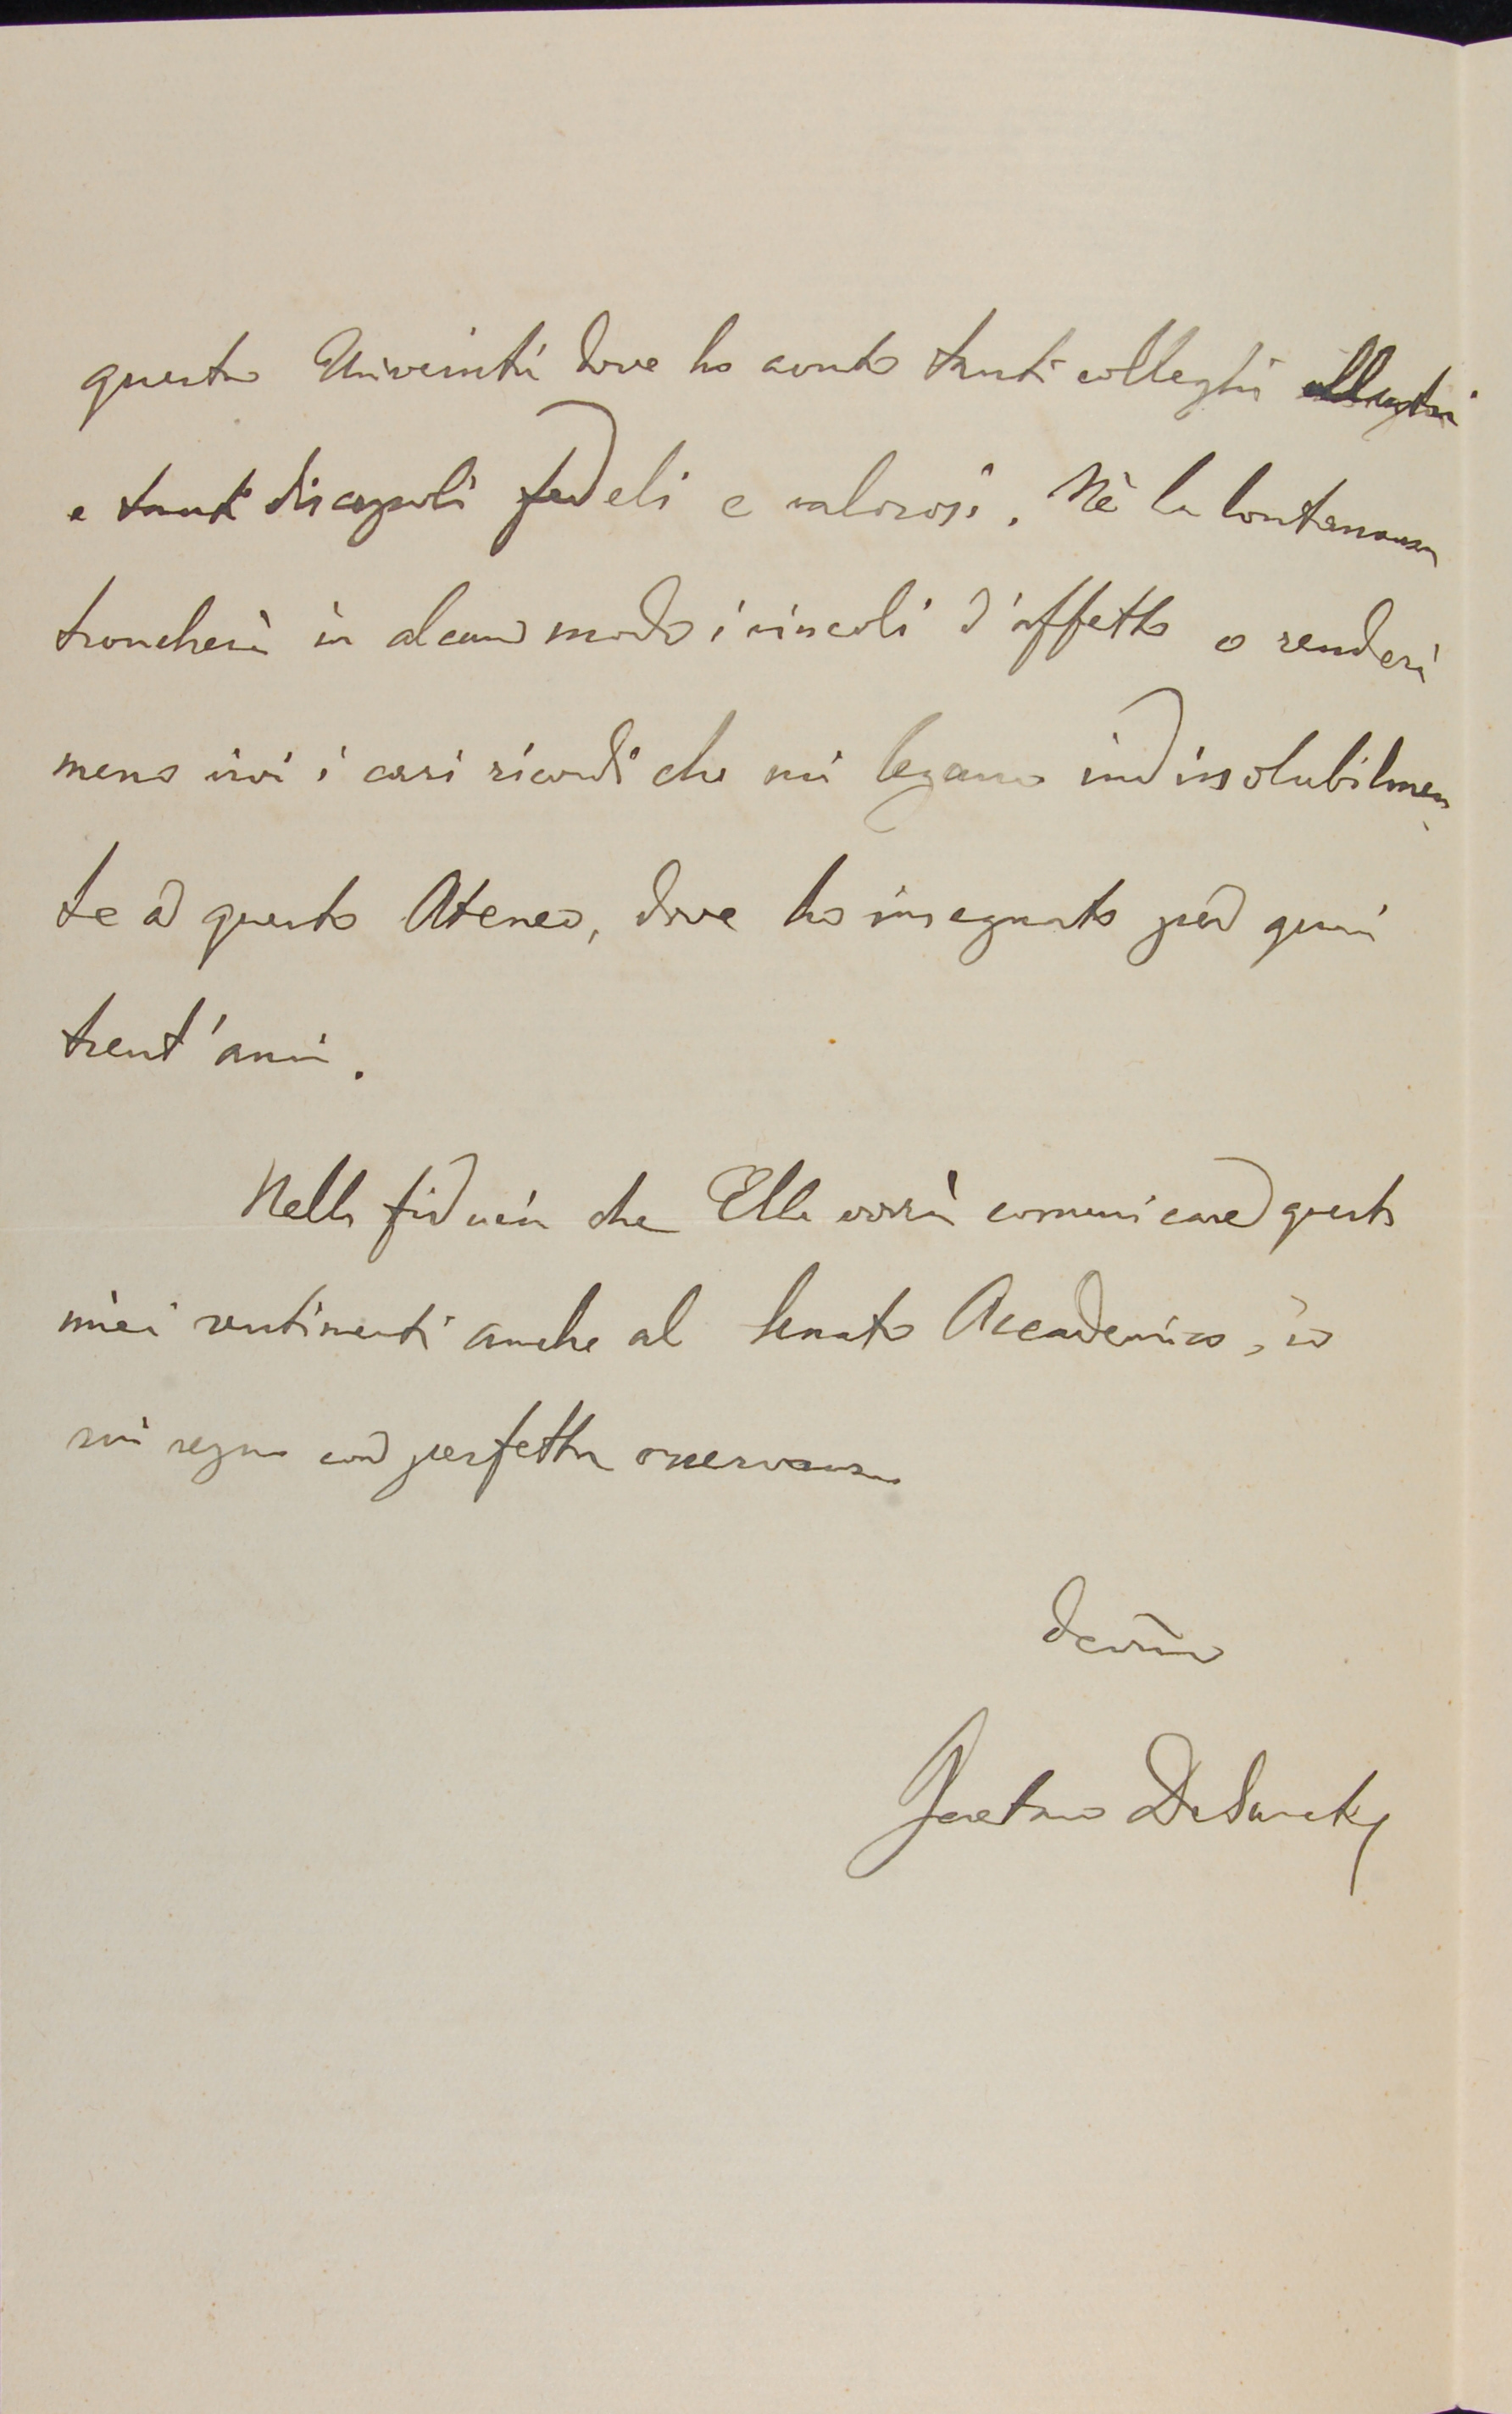 questa Università dove ho avuto tanti colleghi illustri
e tanti discepoli fedeli e valorosi. Nè la lontananza
troncherà in alcun modo i vincoli d'affetto o renderà
meno vivi i cari ricordi che mi legano indissolubilmen
te a questo Ateneo, dove ho insegnato per quasi
trent'anni.
Nella fiducia che Ella vorrà comunicare questi
miei sentimenti anche al Senato Accademico, io
mi segno con perfetta osservanza
devmo
Gaetano De Sanctis